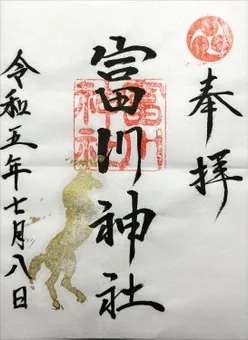 奉拝
富川神社
富川
神社
令和五年七月八日